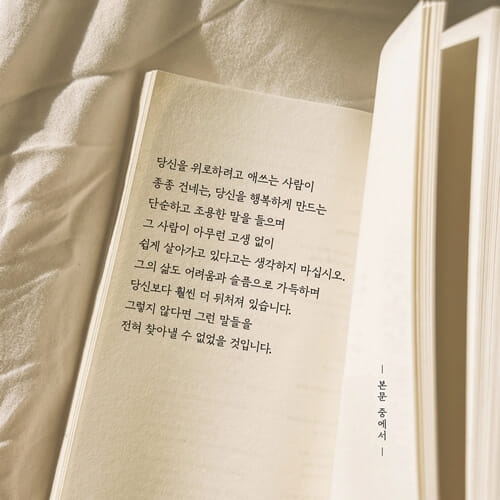 당신을 위로하려고 애쓰는 사람이
종종 건네는, 당신을 행복하게 만드는
단순하고 조용한 말을 들으며
그 사람이 아무런 고생 없이
쉽게 살아가고 있다고는 생각하지 마십시오.
그의 삶도 어려움과 슬픔으로 가득하며
당신보다 훨씬 더 뒤처져 있습니다.
그렇지 않다면 그런 말들을
전혀 찾아낼 수 없었을 것입니다.
— 본문 중에서 —